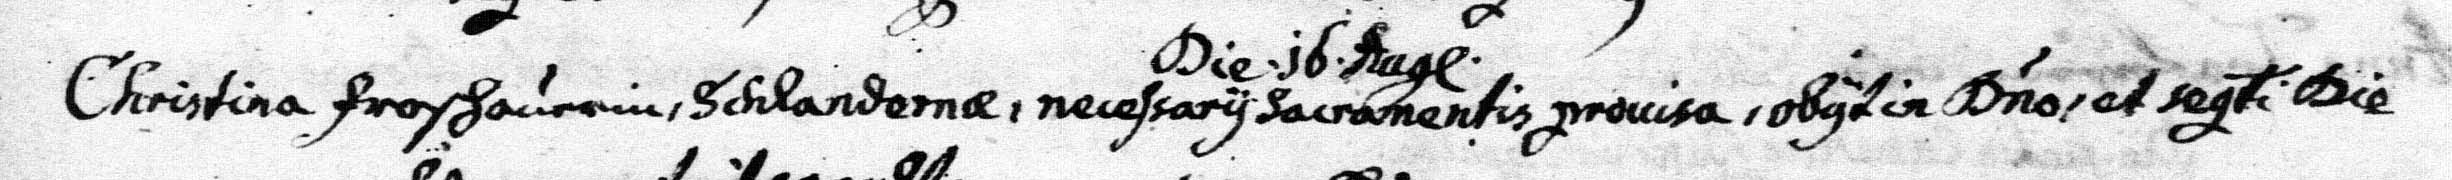 Die . 16 . Augl .
Christina Froschaúrin, Schlandernæ, necessarÿ Sacramentis prouisa, obÿt in Dn̄o, et seqt̄i Die